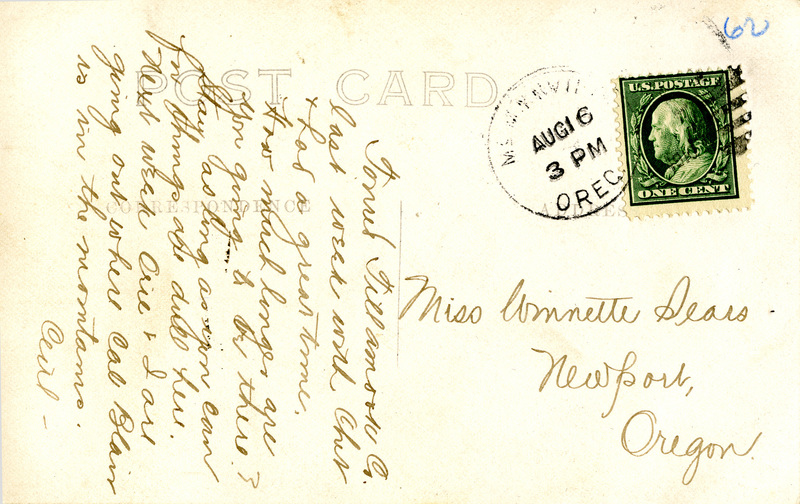 62
POST CARD
McMINNVILLE
AUG 16
3 PM
OREG.
U.S. POSTAGE
ONE CENT
CORRESPONDENCE
ADDRESS
Tillamook Co.
last week with Chet
& had a great time.
How much longer are
you going to be there?
Stay as long as you can
for things are dull here.
Next week Orie & I are
going out where Cal Blair
is in the mountains.
Cecil –
Miss Winnette Sears
Newport,
Oregon.